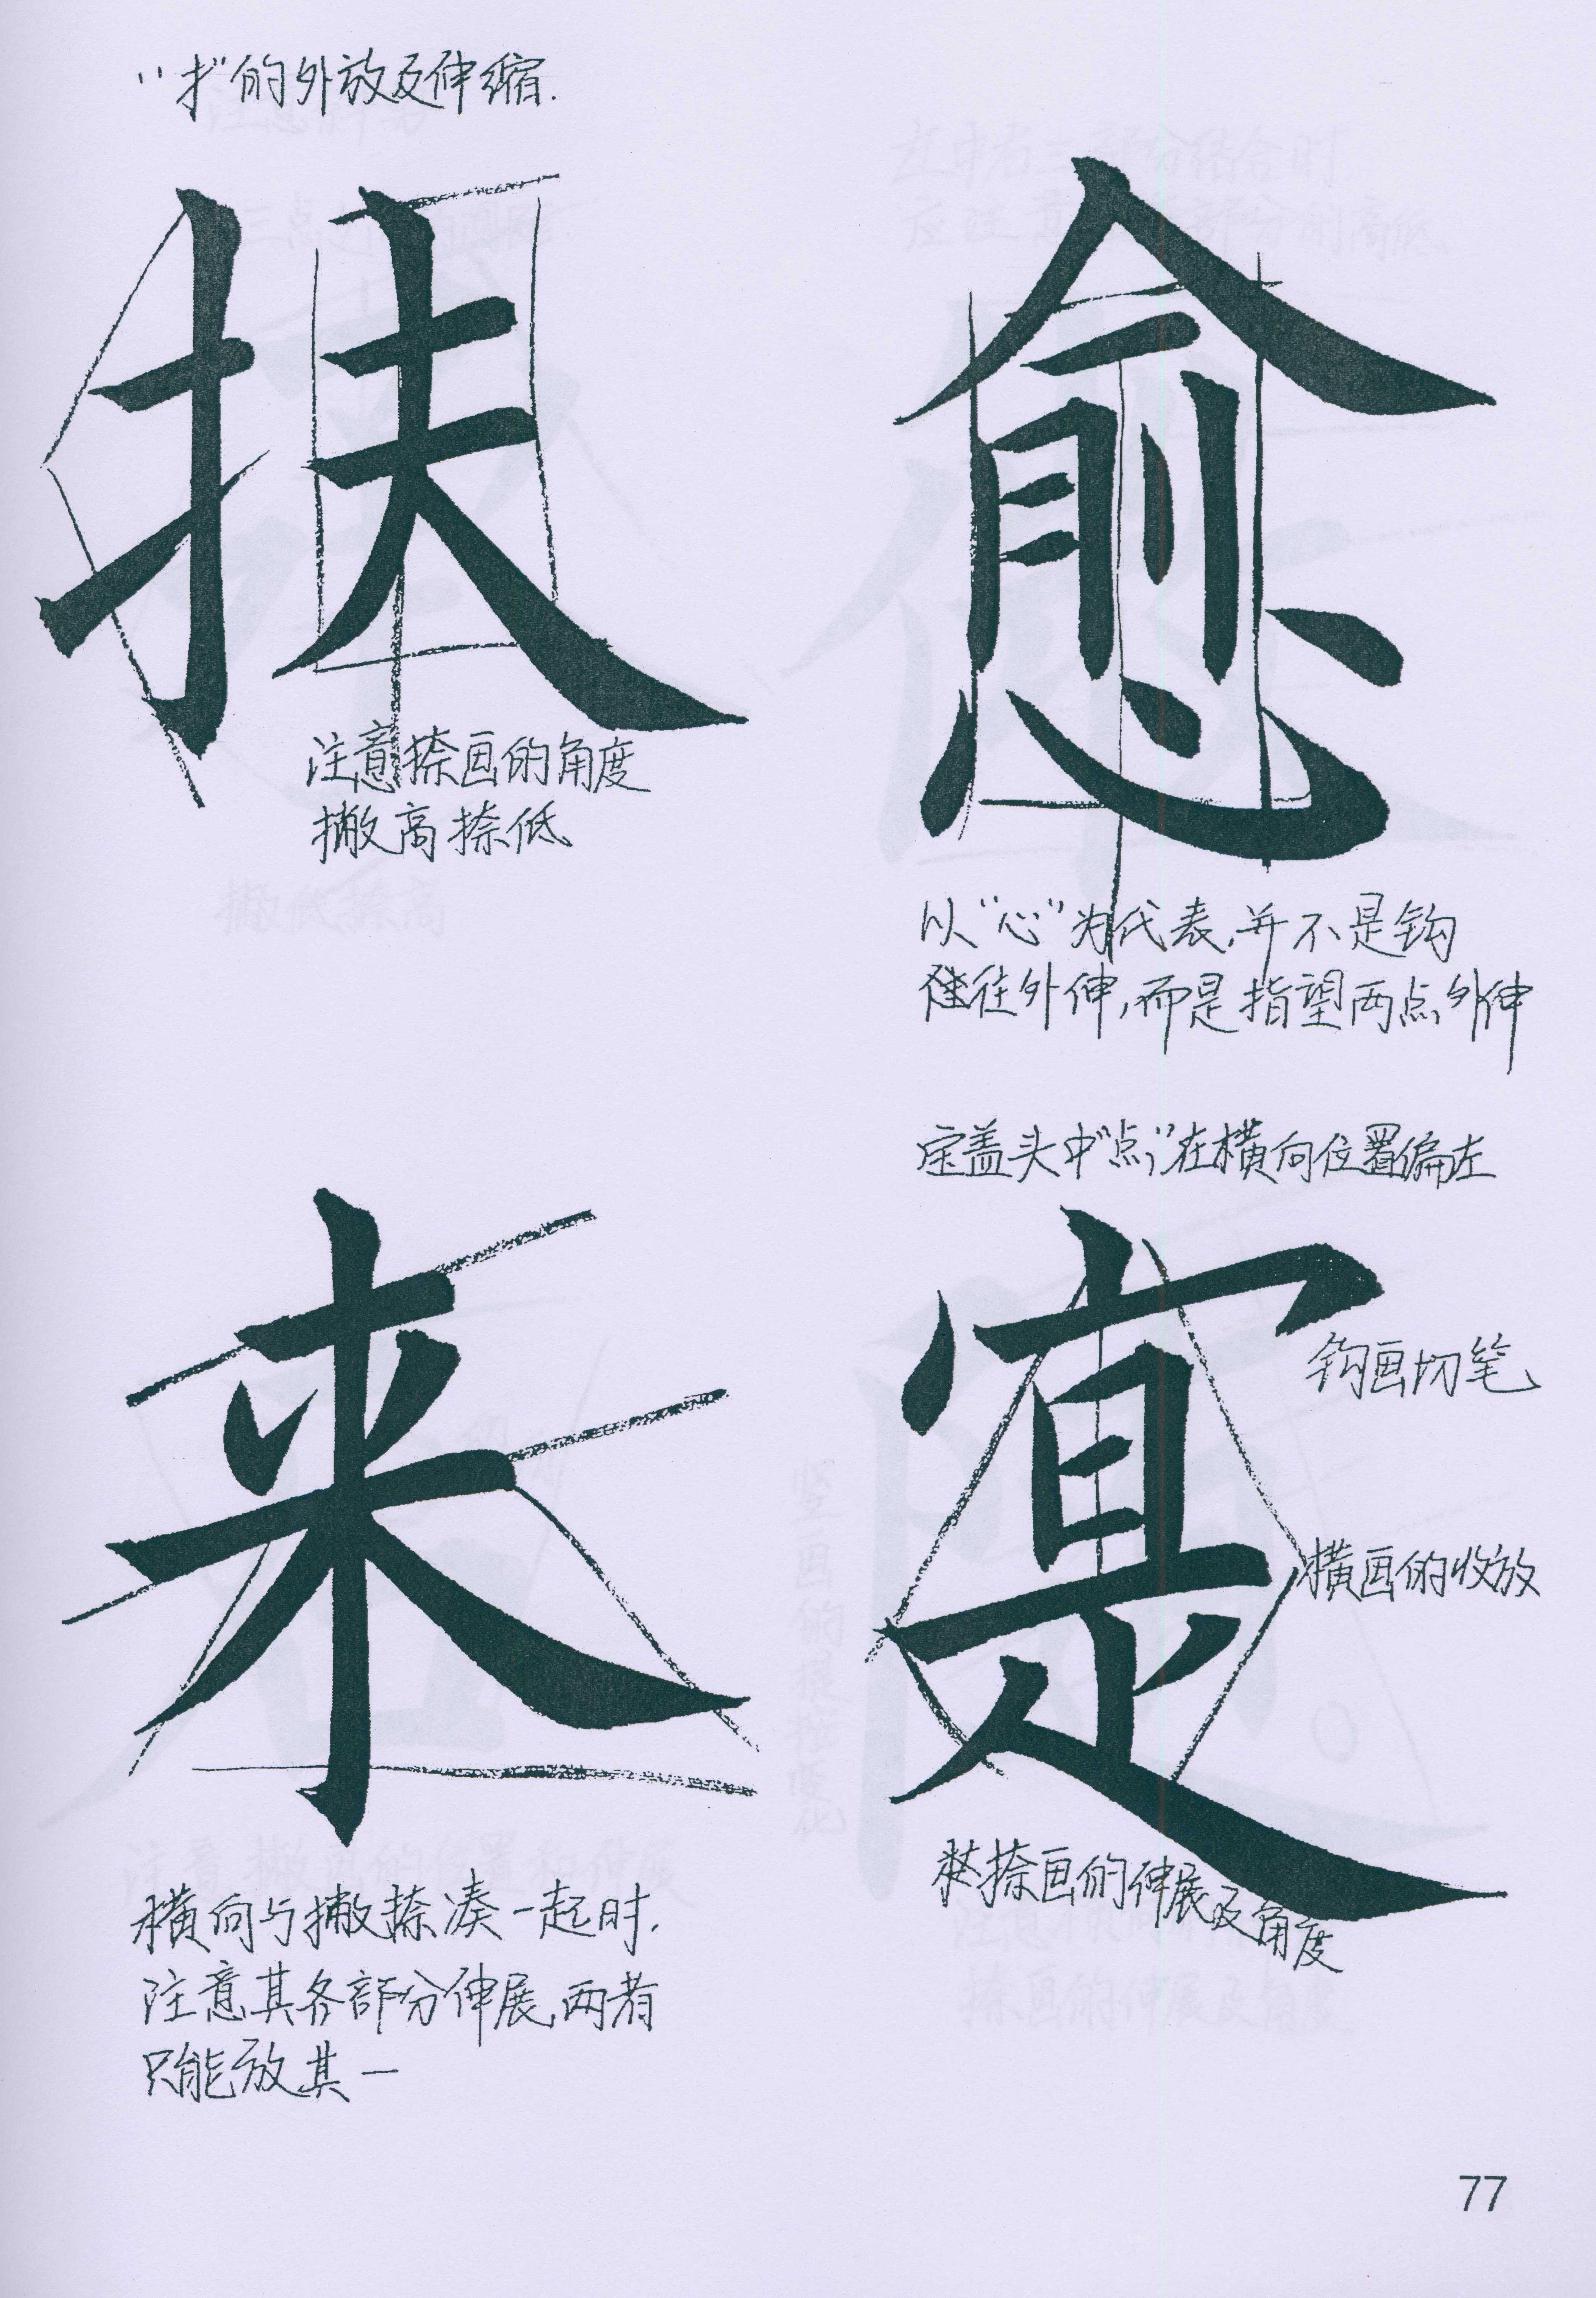 “扌”的外放及伸缩.
扶
注意捺画的角度
撇高捺低
愈
以“心”为代表,并不是钩
往外伸,而是指望两点外伸
宝盖头中“点”在横向位置偏左
来
横向与撇捺凑一起时.
注意其各部分伸展,两者
只能放其一
寔
钩画切笔
横画的收放
捺画的伸展及角度
77